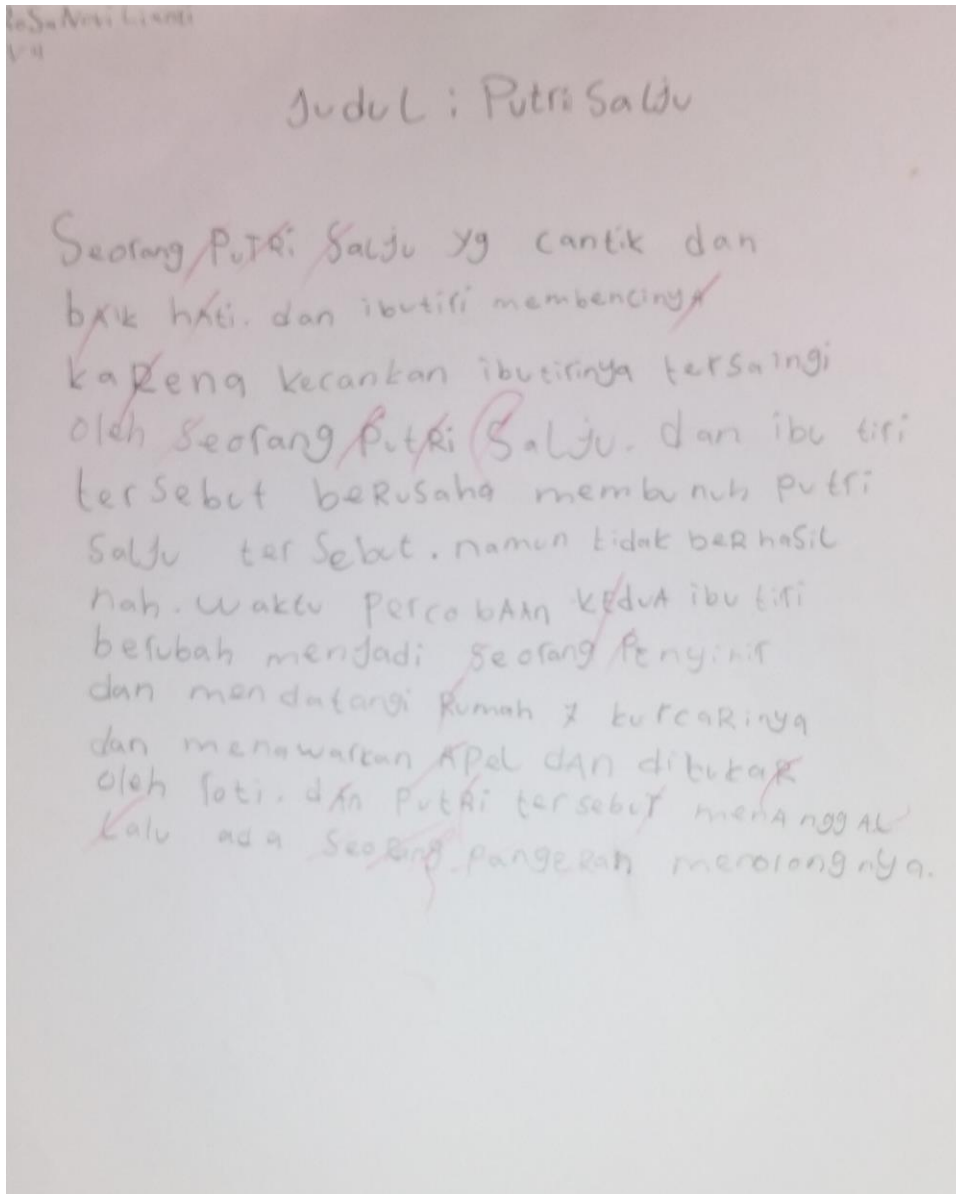 V4
Judul : Putri Salju
Seorang PuTRi Salju yg cantik dan
bAik hAti. dan ibutiri membencinyA
kaRena kecankan ibutirinya tersaingi
oleh Seorang PutRi Salju. dan ibu tiri
ter sebut beRusaha membunuh Putri
Salju ter Sebut. namun tidak beRhasil
nah. waktu Perco bAAn kEduA ibu tiri
berubah menjadi Seorang Penyihir
dan mendatangi Rumah 7 kurcaRinya
dan menawarkan APel dAn ditukaR
oleh roti. dAn PutRi tersebuT menAnggAL
Lalu ada SeoRang pangeRan menolongnya.